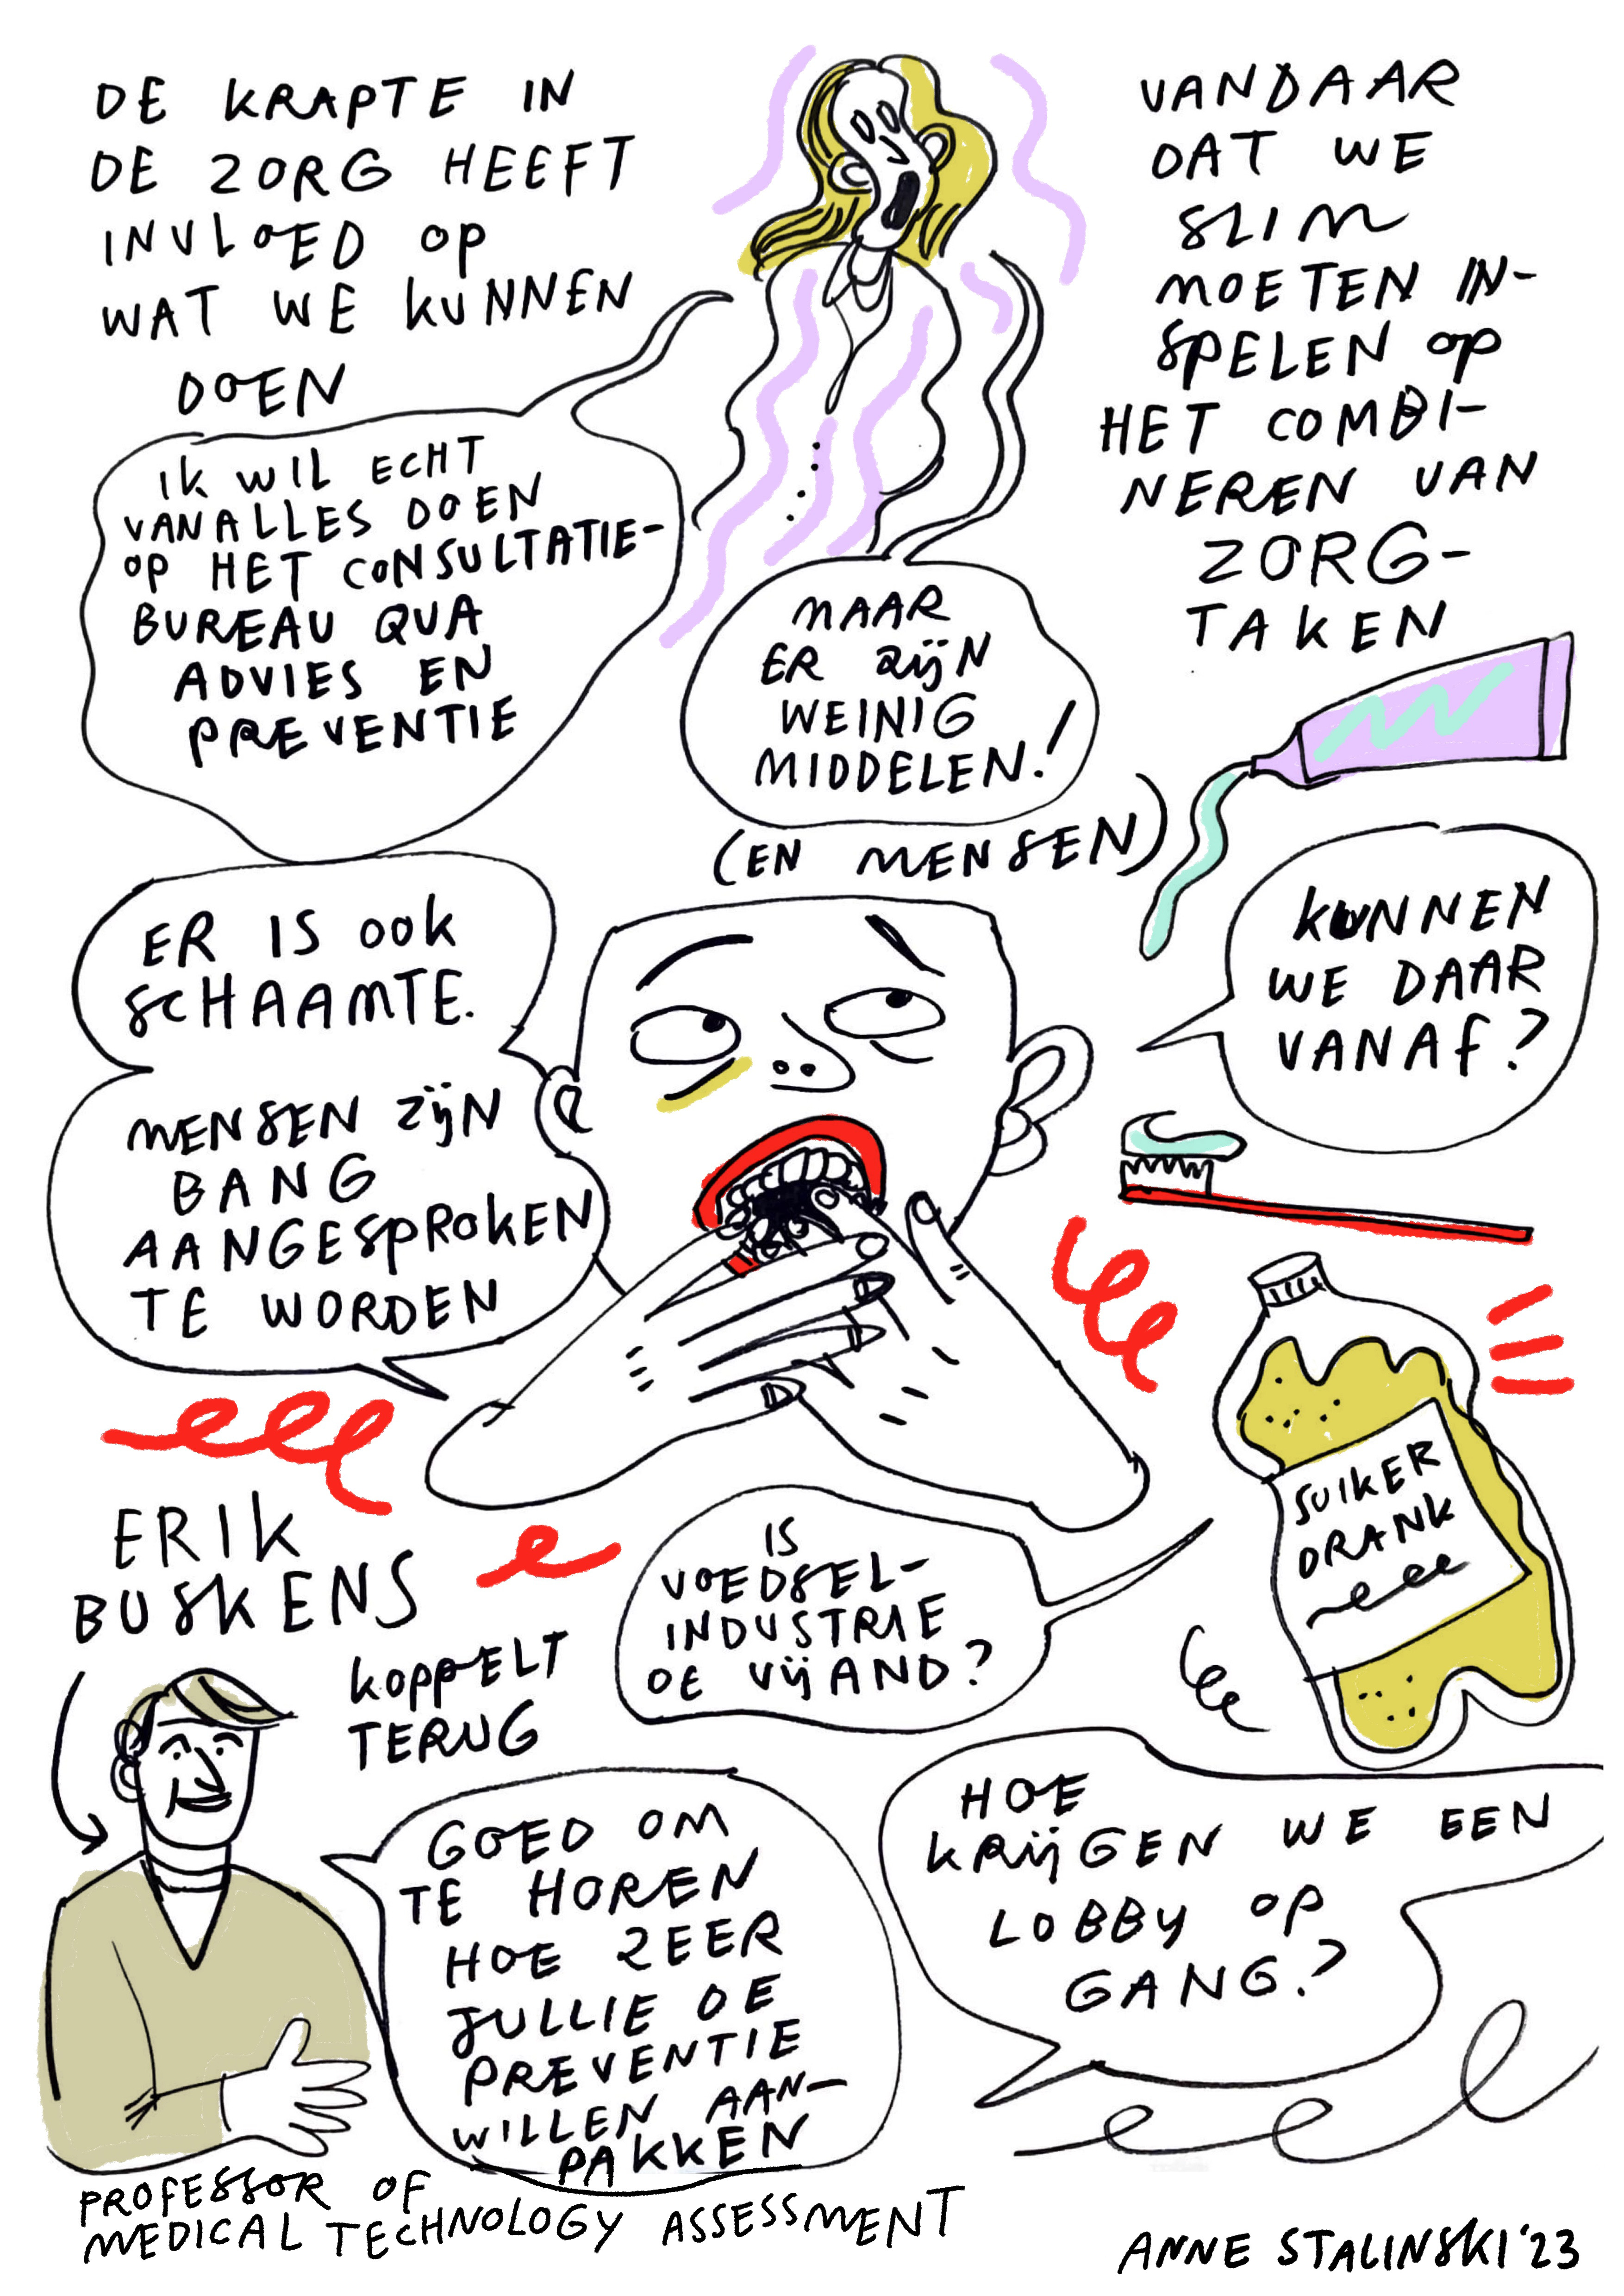 DE KRAPTE IN
DE ZORG HEEFT
INVLOED OP
WAT WE KUNNEN
DOEN
VANDAAR
DAT WE
SLIM
MOETEN IN-
SPELEN OP
HET COMBI-
NEREN VAN
ZORG-
TAKEN
IK WIL ECHT
VANALLES DOEN
OP HET CONSULTATIE-
BUREAU QUA
ADVIES EN
PREVENTIE
MAAR
ER ZIJN
WEINIG
MIDDELEN!
(EN MENSEN)
ER IS OOK
SCHAAMTE.
KUNNEN
WE DAAR
VANAF?
MENSEN ZIJN
BANG
AANGESPROKEN
TE WORDEN
SUIKER
DRANK
IS
VOEDSEL-
INDUSTRIE
DE VIJAND?
ERIK
BUSKENS
KOPPELT
TERUG
GOED OM
TE HOREN
HOE ZEER
JULLIE DE
PREVENTIE
WILLEN AAN-
PAKKEN
HOE
KRIJGEN WE EEN
LOBBY OP
GANG?
PROFESSOR OF
MEDICAL TECHNOLOGY ASSESSMENT
ANNE STALINSKI '23